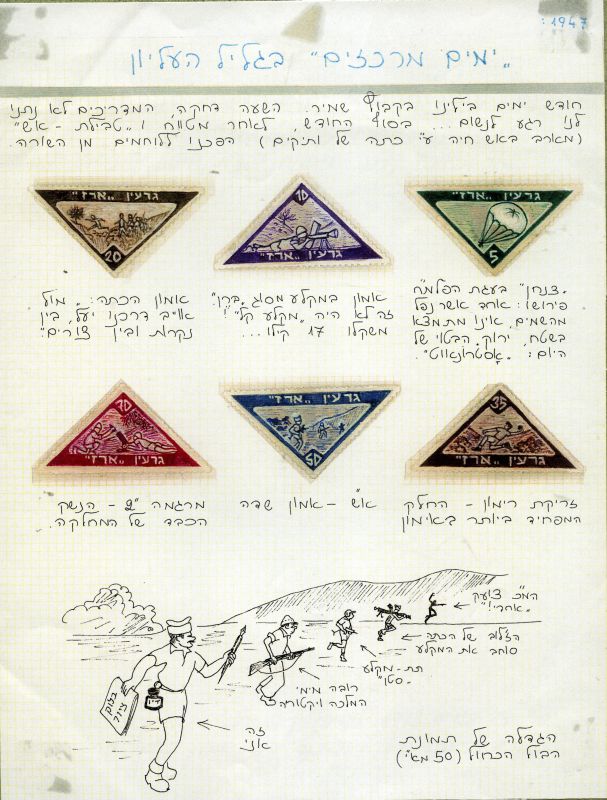 1947:
"ימים מרכזים" בגליל העליון
חודש ימים בילינו בקבוץ שמיר. השעה דחקה, המדריכים לא נתנו
לנו רגע לנשום... בסוף החודש, לאחר מטווח ו"טבילת-אש"
(מארב באש חיה ע"י כתה של ותיקים) הפכנו ללוחמים מן השורה.
גרעין "ארז"
5
10
גרעין "ארז"
גרעין "ארז"
20
"צנחן" בעגת הפלמ"ח
פירושו: אחד אשר נפל
מהשמים, אינו מתמצא
בשטח, ירוק. הבטוי של
היום: "אסטרונאוט".
אמון במקלע מסוג "ברן"
זה לא היה "מקלע קל"!
משקלו 17 קילו...
אמון הכתה: "מול
אוייב דרכנו יעל, בין
נקרות ובין צורים"
35
גרעין "ארז"
גרעין "ארז"
50
70
גרעין "ארז"
זריקת רימון - החלק
המפחיד ביותר באימון
או"ש - אמון שדה
מרגמה "2 - הנשק
הכבד של המחלקה.
המ"כ צועק
"אחרי!"
הצלוב של הכתה
סוחב את המקלע
תת-מקלע
"סטן"
רובה מימי
המלכה ויקטוריה
זה
אני
בלוק
ציור
דיו
הגדלה של תמונת
הבול הכחול (50 מא"י)